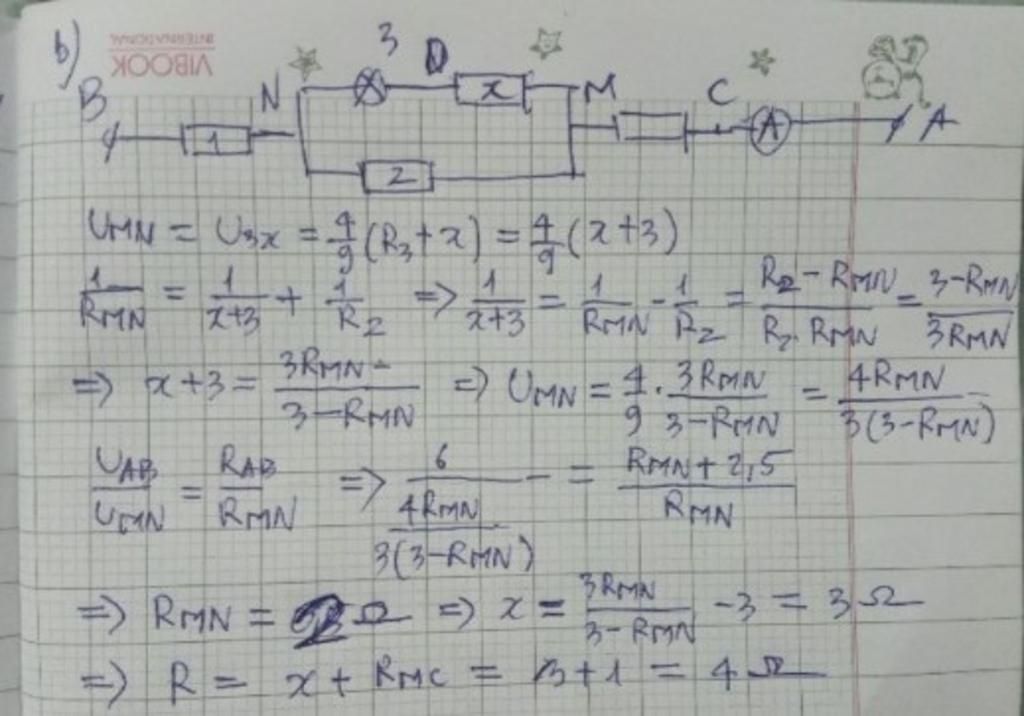 b)
VIBOOK
INTERNATIONAL
B 1 N 3 D x M C A A
2
U_MN = U_3x = 4/9 (R_3 + x) = 4/9 (x+3)
1/R_MN = 1/(x+3) + 1/R_2 => 1/(x+3) = 1/R_MN - 1/R_2 = (R_2 - R_MN)/(R_2 . R_MN) = (3 - R_MN)/(3R_MN)
=> x+3 = 3R_MN/(3 - R_MN) => U_MN = 4/9 . 3R_MN/(3 - R_MN) = 4R_MN/(3(3 - R_MN))
U_AB/U_MN = R_AB/R_MN => 6/(4R_MN/(3(3 - R_MN))) = (R_MN + 2,5)/R_MN
=> R_MN = 2 Ω => x = 3R_MN/(3 - R_MN) - 3 = 3 Ω
=> R = x + R_MC = 3 + 1 = 4 Ω